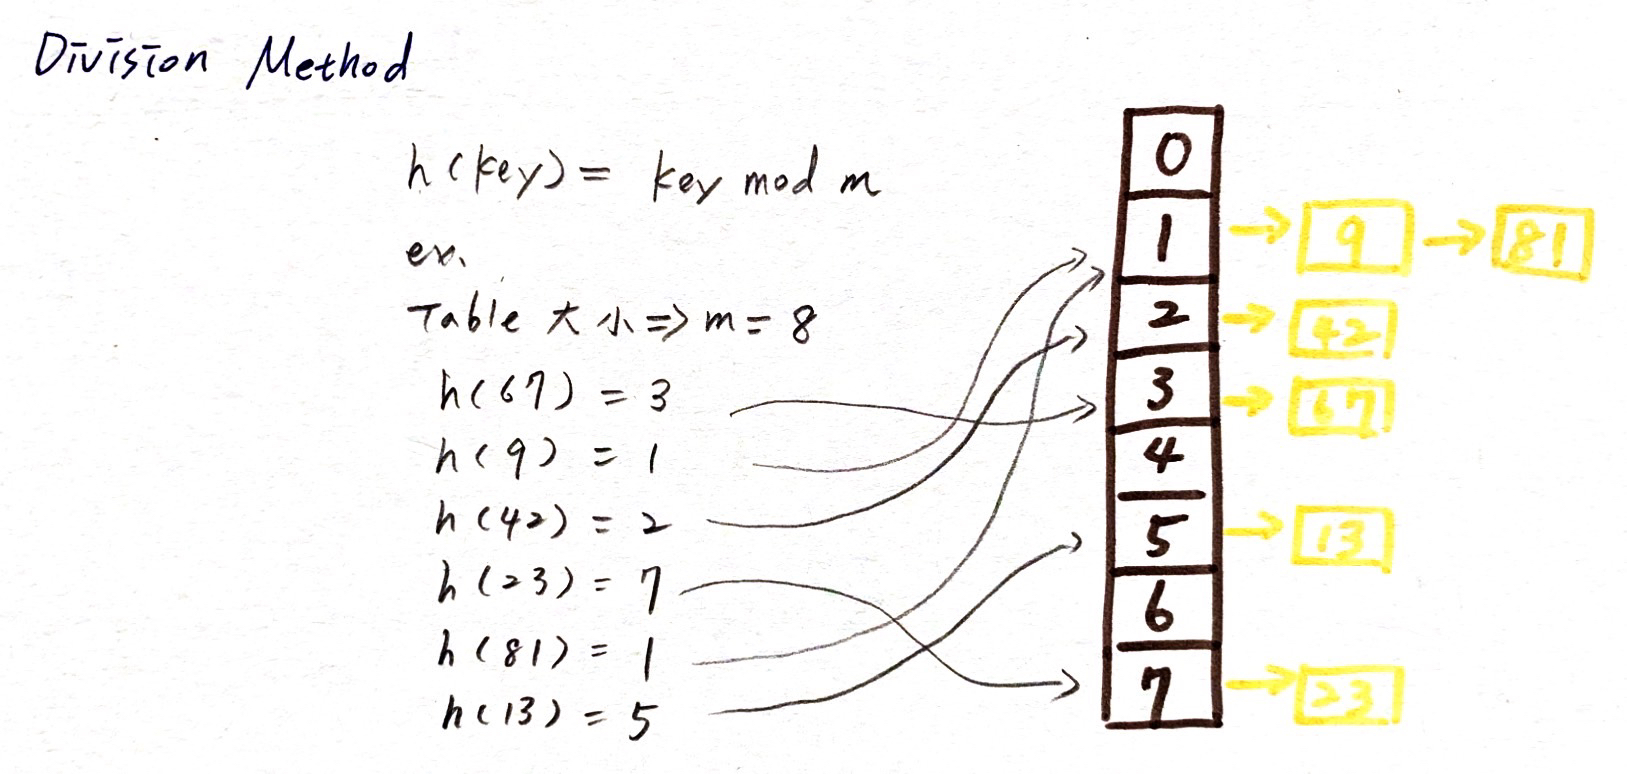 Division Method
h(key) = key mod m
ex.
Table 大小 => m = 8
h(67) = 3
h(9) = 1
h(42) = 2
h(23) = 7
h(81) = 1
h(13) = 5
0
1 → 9 → 81
2 → 42
3 → 67
4
5 → 13
6
7 → 23